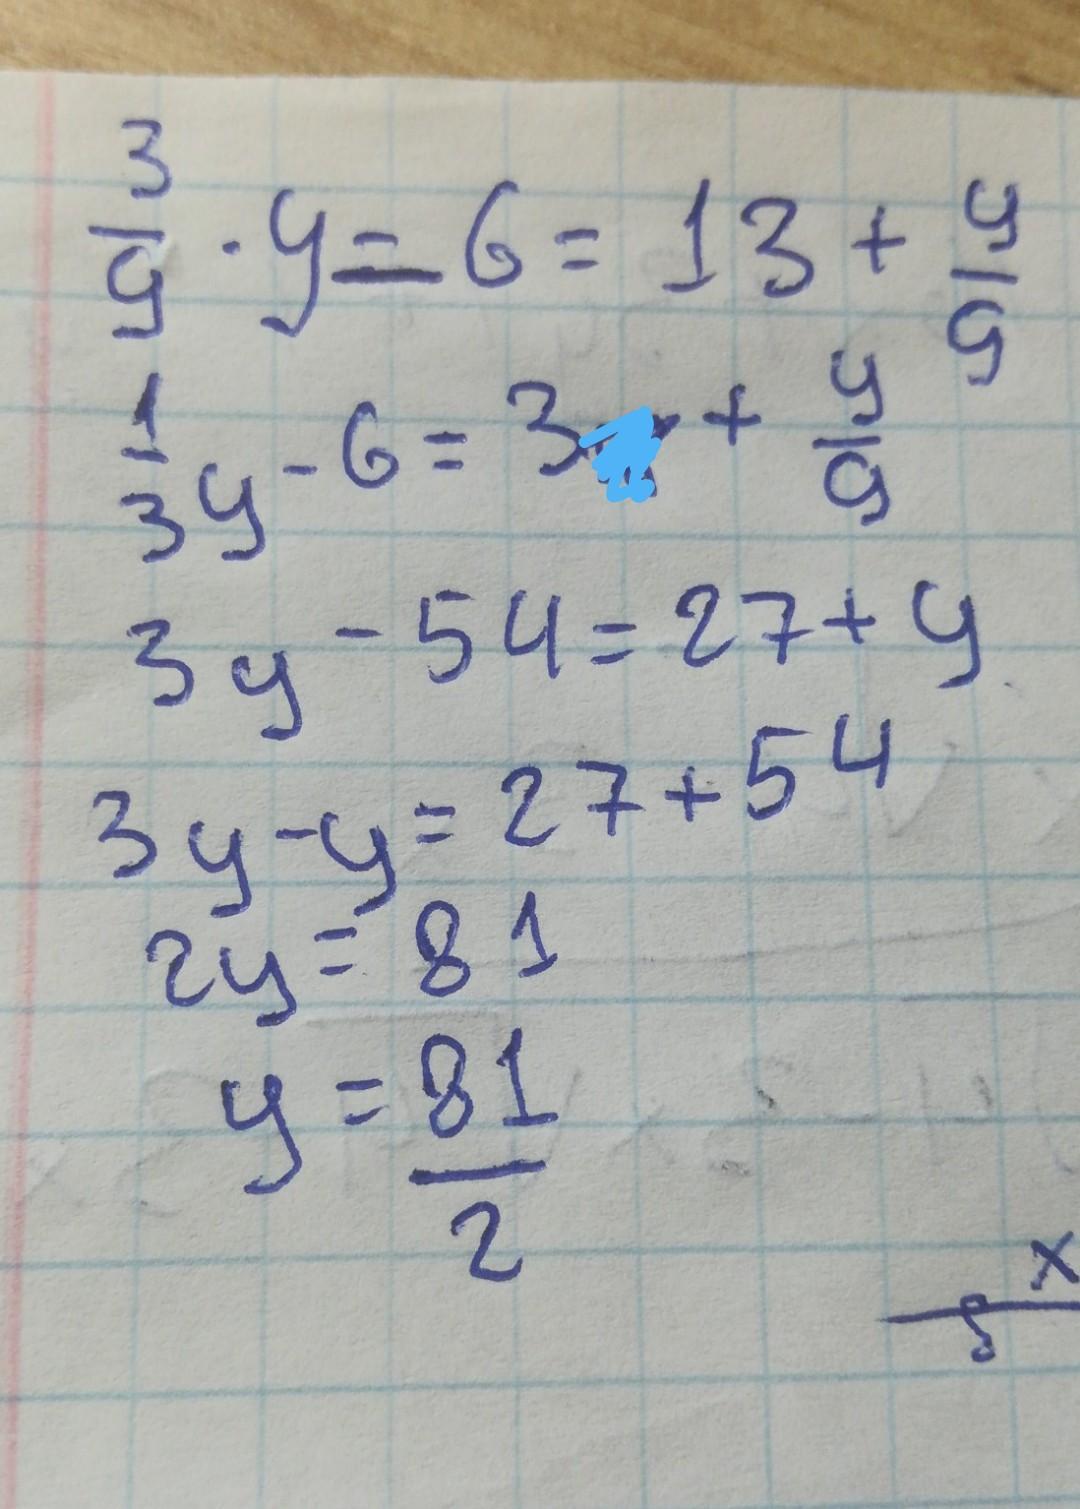 3/9 · y = 6 = 13 + y/9
1/3 y - 6 = 3 + y/9
3y - 54 = 27 + y
3y - y = 27 + 54
2y = 81
y = 81/2
x